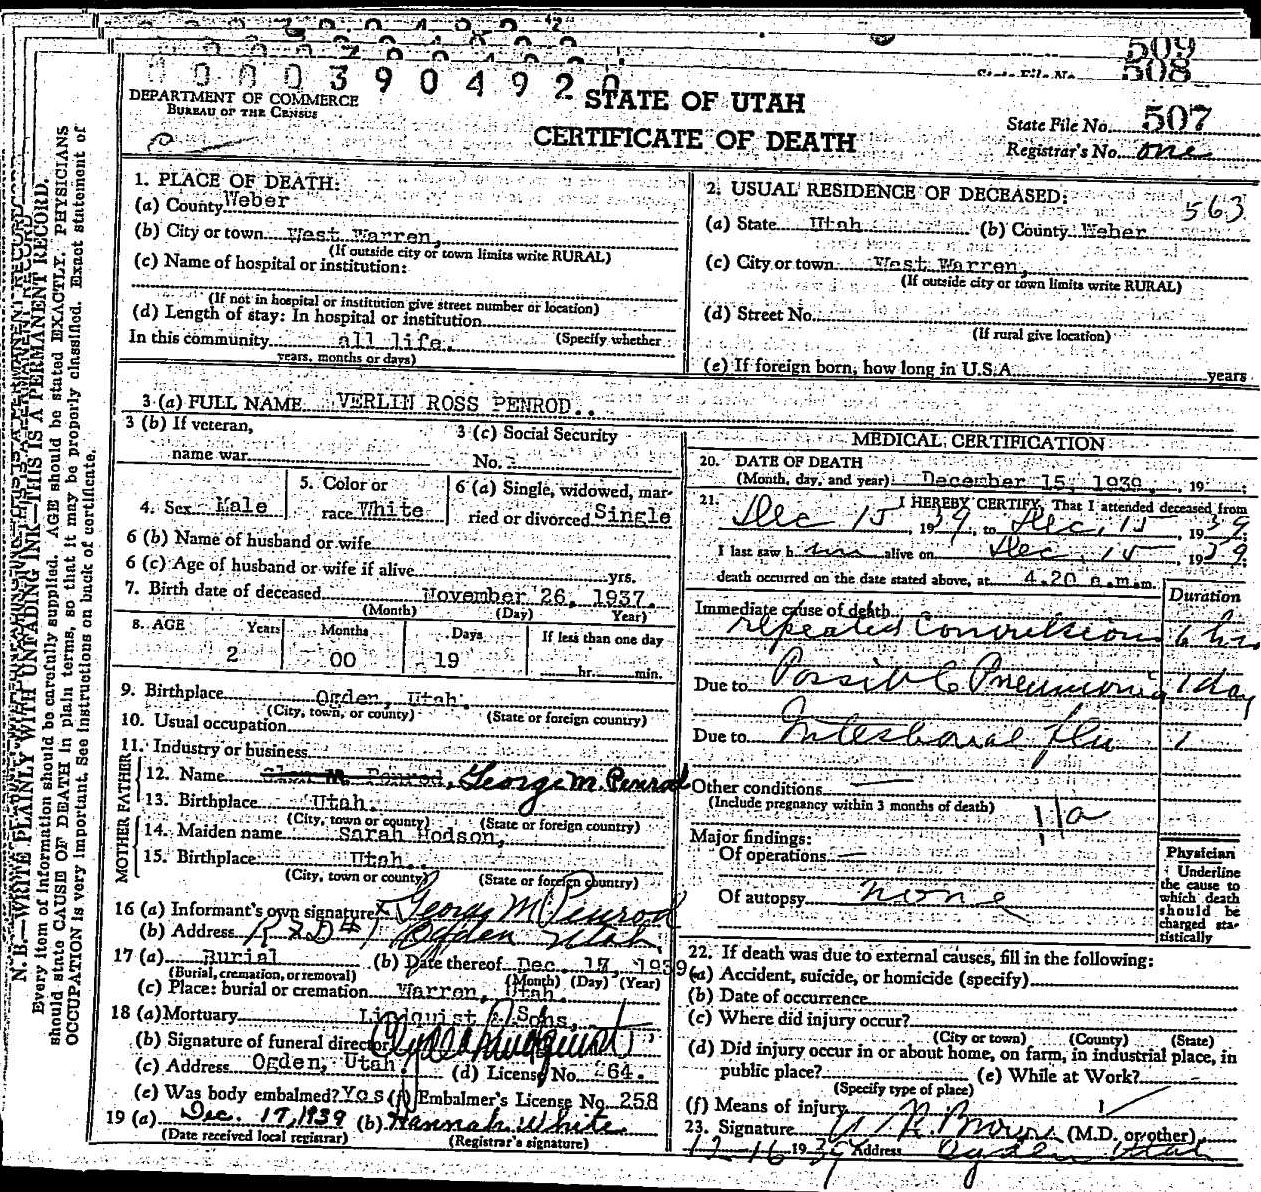 509
508
State File No.
0000390492 0
DEPARTMENT OF COMMERCE
BUREAU OF THE CENSUS
STATE OF UTAH
CERTIFICATE OF DEATH
State File No. 507
Registrar's No. one
N. B.—WRITE PLAINLY WITH UNFADING INK—THIS IS A PERMANENT RECORD.
Every item of information should be carefully supplied. AGE should be stated EXACTLY. PHYSICIANS
should state CAUSE OF DEATH in plain terms, so that it may be properly classified. Exact statement of
OCCUPATION is very important. See instructions on back of certificate.
1. PLACE OF DEATH:
(a) County Weber
(b) City or town West Warren,
(If outside city or town limits write RURAL)
(c) Name of hospital or institution:
(If not in hospital or institution give street number or location)
(d) Length of stay: In hospital or institution
In this community all life. (Specify whether
years, months or days)
2. USUAL RESIDENCE OF DECEASED:
563
(a) State Utah (b) County Weber
(c) City or town West Warren,
(If outside city or town limits write RURAL)
(d) Street No.
(If rural give location)
(e) If foreign born, how long in U.S.A. years
3 (a) FULL NAME VERLIN ROSS PENROD..
3 (b) If veteran,
name war
3 (c) Social Security
No.
4. Sex Male
5. Color or
race White
6 (a) Single, widowed, mar-
ried or divorced Single
6 (b) Name of husband or wife
6 (c) Age of husband or wife if alive yrs.
7. Birth date of deceased November 26, 1937.
(Month) (Day) Year)
8. AGE Years Months Days If less than one day
2 00 19 hr. min.
9. Birthplace Ogden, Utah.
(City, town, or county) (State or foreign country)
10. Usual occupation
11. Industry or business
FATHER
12. Name Glen M. Penrod, George M. Penrod
13. Birthplace Utah.
(City, town or county) (State or foreign country)
MOTHER
14. Maiden name Sarah Hodson,
15. Birthplace Utah.
(City, town or county) (State or foreign country)
16 (a) Informant's own signature X George M Penrod
(b) Address R F D #1 Ogden Utah
17 (a) Burial (b) Date thereof Dec. 17, 1939
(Burial, cremation, or removal) (Month) (Day) (Year)
(c) Place: burial or cremation Warren, Utah.
18 (a) Mortuary Lindquist & Sons,
(b) Signature of funeral director Clyde Lindquist
(c) Address Ogden, Utah. (d) License No. 64.
(e) Was body embalmed? Yes (f) Embalmer's License No. 258
19 (a) Dec. 17, 1939 (b) Hannah White
(Date received local registrar) (Registrar's signature)
MEDICAL CERTIFICATION
20. DATE OF DEATH
(Month, day, and year) December 15, 1939, 19
21. I HEREBY CERTIFY, That I attended deceased from
Dec 15, 1939, to Dec, 15 1939
I last saw him alive on Dec, 15 1939;
death occurred on the date stated above, at 4.20 a.m.m.
Duration
Immediate cause of death
repeated Convulsions 6 hrs
Due to Possible Pneumonia 1 day
Due to Intestional flu 1
Other conditions —
(Include pregnancy within 3 months of death)
11a
Major findings:
Of operations —
Of autopsy none
Physician
Underline
the cause to
which death
should be
charged sta-
tistically
22. If death was due to external causes, fill in the following:
(a) Accident, suicide, or homicide (specify)
(b) Date of occurrence
(c) Where did injury occur?
(City or town) (County) (State)
(d) Did injury occur in or about home, on farm, in industrial place, in
public place? (e) While at Work?
(Specify type of place)
(f) Means of injury
23. Signature R. Brown (M.D. or other)
12-16 1939 Address Ogden Utah